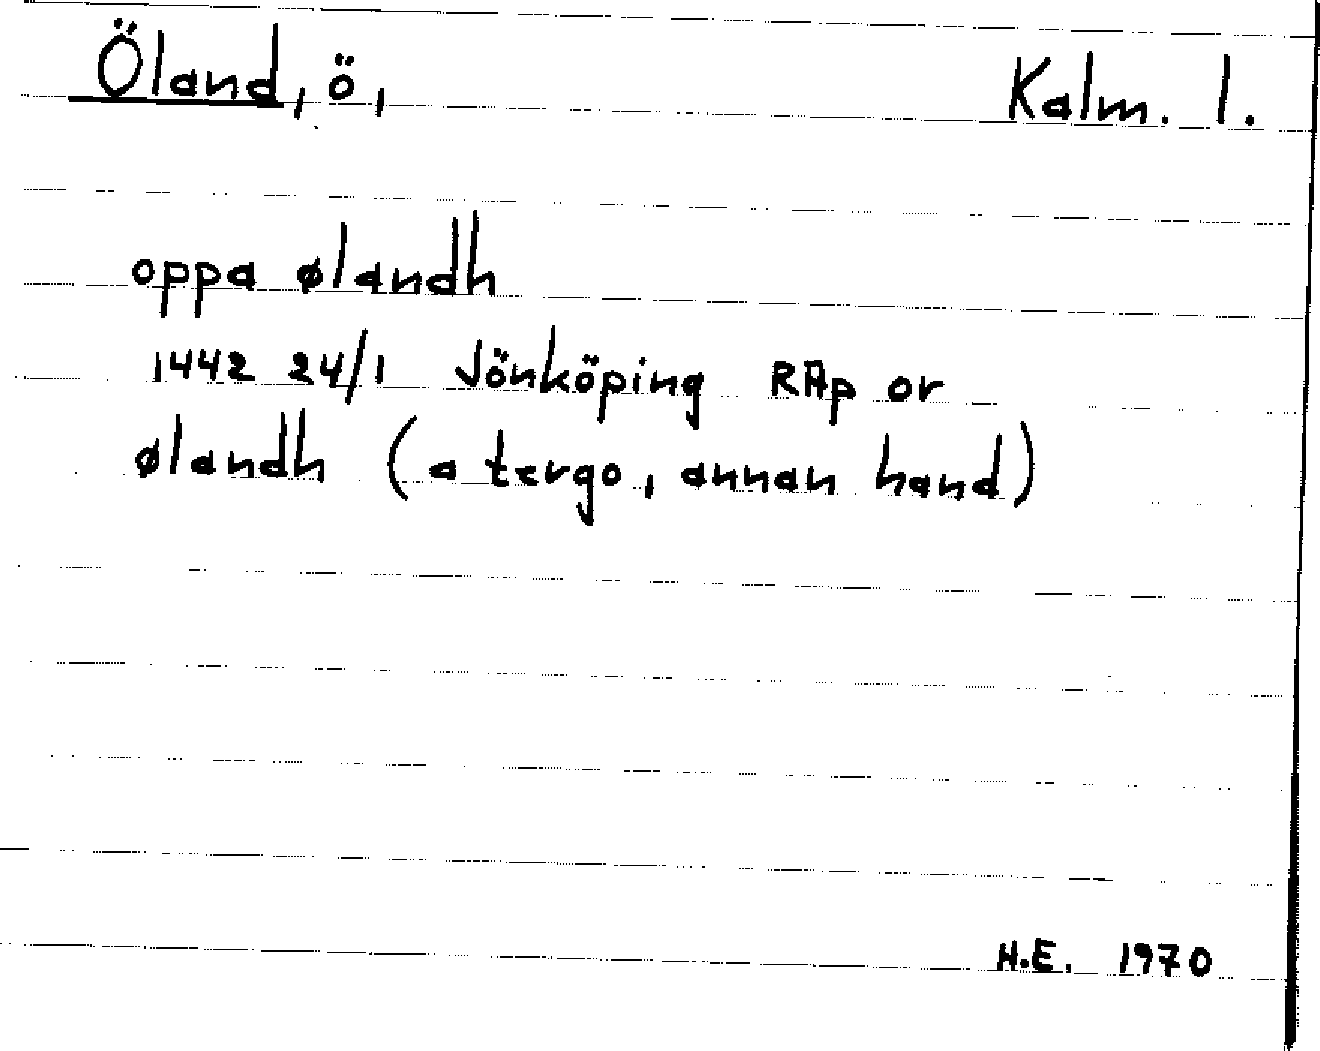 Öland, ö, Kalm. l.
oppa ølandh
1442 24/1 Jönköping RAp or
ølandh (a tergo, annan hand)
H.E. 1970